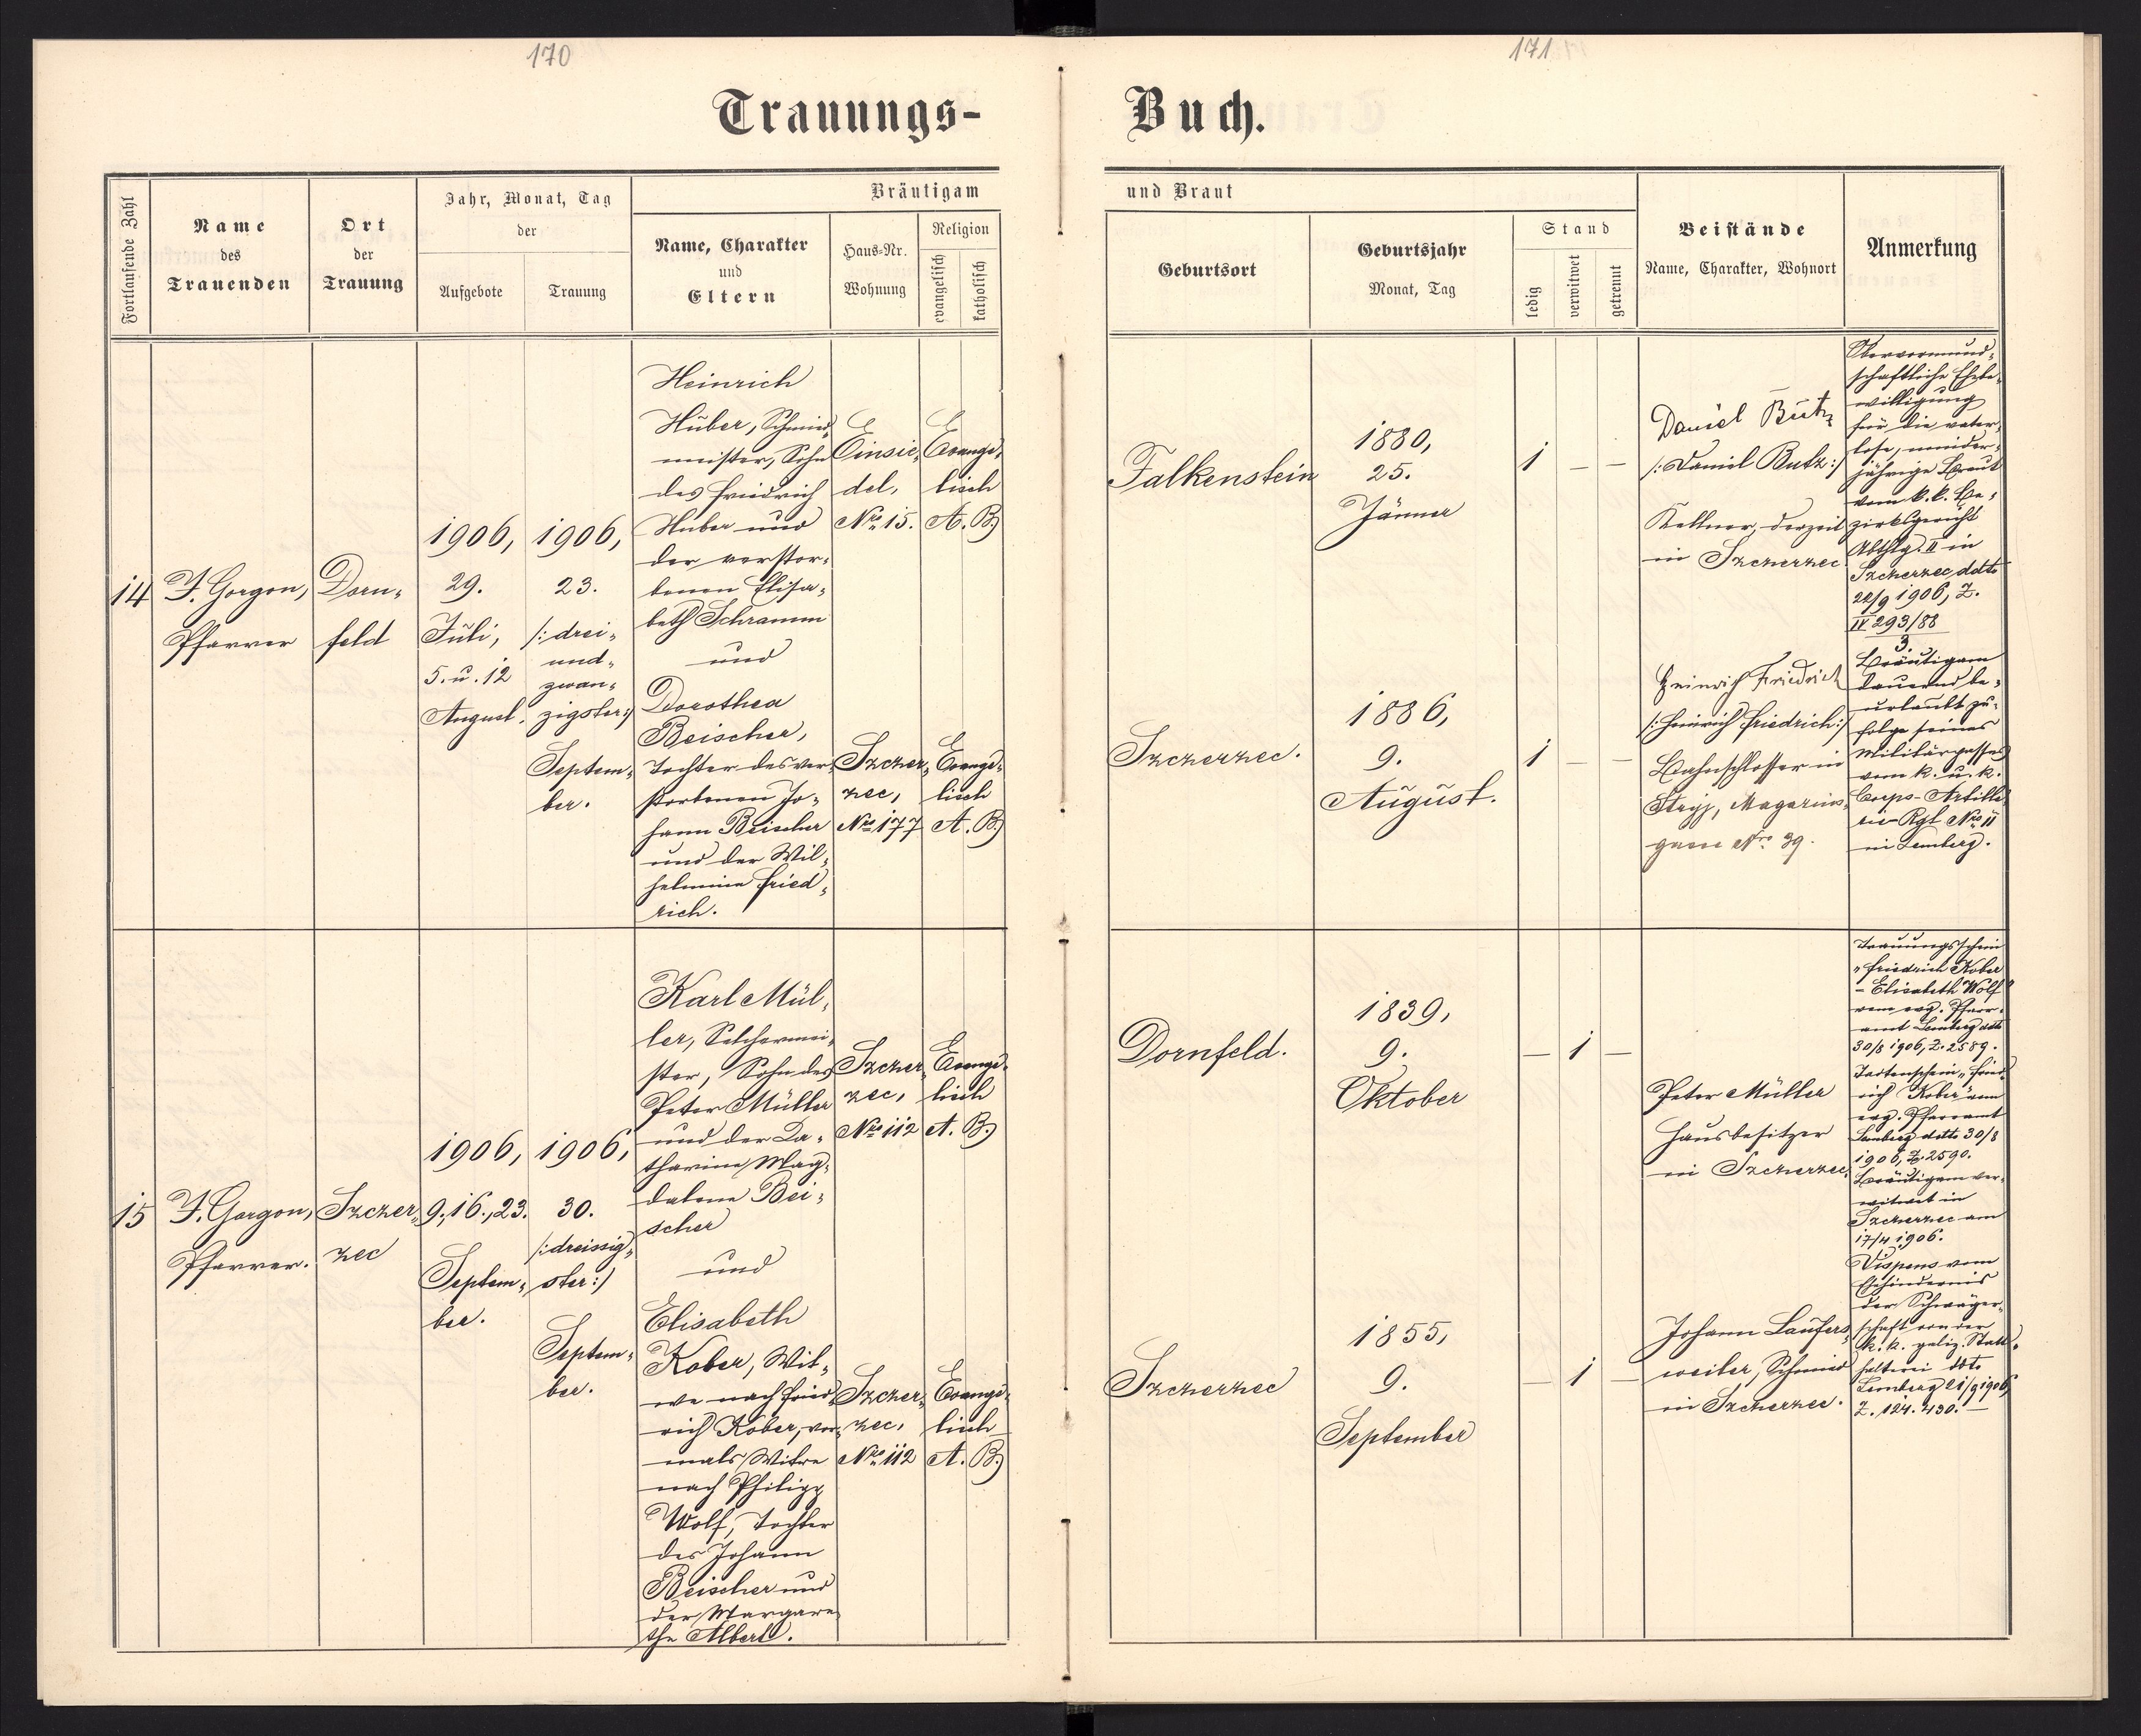 170
171
Trauungs-
Buch.
Fortlaufende Zahl
Name
des
Trauenden
Ort
der
Trauung
Jahr, Monat, Tag
der
Aufgebote
Trauung
Bräutigam
Name, Charakter
und
Eltern
Haus-Nr.
Wohnung
Religion
evangelisch
katholisch
und Braut
Geburtsort
Geburtsjahr
Monat, Tag
Stand
ledig
verwitwet
getrennt
Beistände
Name, Charakter, Wohnort
Anmerkung
14
F. Gorgon,
Pfarrer
Dorn-
feld
1906,
29.
Juli,
5. u. 12
August.
1906,
23.
/: drei-
und-
zwan-
zigster :/
Septem-
ber.
Heinrich
Huber, Schmied-
meister, Sohn
des Friedrich
Huber und
der verstor-
benen Elisa-
beth Schramm
und
Dorothea
Beischer,
Tochter des ver-
storbenen Jo-
hann Beischer
und der Wil-
helmine Fried-
rich.
Einsie-
del,
Nro 15.
Evange-
lisch
A. B.
Szczer-
zec,
Nro 177
Evange-
lisch
A. B.
Falkenstein
1880,
25.
Jänner
1 — —
Szczerzec.
1886,
9.
August.
1 — —
Daniel Butz
/: Daniel Butz :/
Kellner, derzeit
in Szczerzec
Heinrich Friedrich
/: Heinrich Friedrich :/
Bahnschlosser in
Stryj, Magazins-
gasse Nro 39.
Obervormund-
schaftliche Ehebe-
willigung
für die vater-
lose, minder-
jährige Braut
vom k. k. Be-
zirksgericht
Abthlg. II in
Szczerzec ddto
22/9 1906, Z.
IV 293/88
3.
Bräutigam
dauernd be-
urlaubt zu-
folge seines
Militärpasses
vom k. u. k.
Corps-Artille-
rie-Rgt Nro 11
in Lemberg.
15
F. Gorgon,
Pfarrer.
Szczer-
zec
1906,
9., 16., 23.
Septem-
ber.
1906,
30.
/: dreissig-
ster :/
Septem-
ber.
Karl Mül-
ler, Selchermei-
ster, Sohn des
Peter Müller
und der Ka-
tharina Mag-
dalena Bei-
scher
und
Elisabeth
Kober, Wit-
we nach Fried-
rich Kober, vor-
mals Witwe
nach Philipp
Wolf, Tochter
des Johann
Beischer und
der Margare-
the Albert.
Szczer-
zec,
Nro 112
Evange-
lisch
A. B.
Szczer-
zec,
Nro 112
Evange-
lisch
A. B.
Dornfeld.
1839,
9.
Oktober
— 1 —
Szczerzec
1855,
9.
September
— 1 —
Peter Müller
Hausbesitzer
in Szczerzec
Johann Laufers-
weiler, Schmied
in Szczerzec.
Trauungsschein
„Friedrich Kober
- Elisabeth Wolf"
vom evg. Pfarr-
amt Lemberg ddto
30/8 1906, Z. 2589.
Todtenschein „Fried-
rich Kober" vom
evg. Pfarramt
Lemberg ddto 30/8
1906, Z. 2590.
Bräutigam ver-
witwet in
Szczerzec am
17/4 1906.
Dispens vom
Ehehindernis
der Schwäger-
schaft von der
k. k. galiz. Statt-
halterei ddto
Lemberg 21/9 1906
Z. 124.430. —